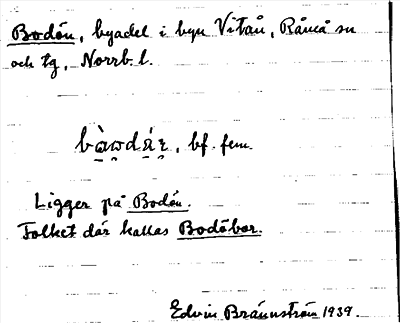 Bodön, byadel i byn Vitån, Råneå sn
och tg, Norrb. l.
bf. fem.
Ligger på Bodön.
Folket där kallas Bodöbor.
Edvin Brännström 1939.